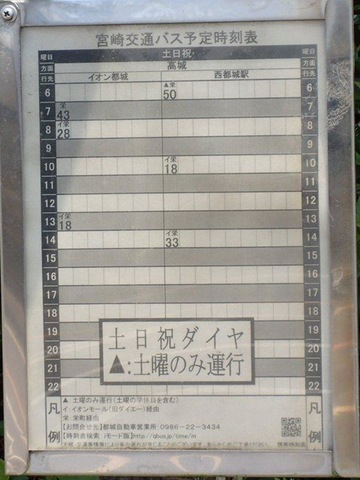 宮崎交通バス予定時刻表
曜日 土日祝 曜日
方面 高城 方面
行先 イオン都城 西都城駅 行先
▲栄
6 50 6
栄
7 43 7
イ栄
8 28 8
9 9
イ栄
10 18 10
11 11
12 12
イ栄
13 18 13
栄
14 33 14
15 15
16 16
17 17
18 18
19 19
20 20
21 21
22 22
土日祝ダイヤ
▲:土曜のみ運行
凡例 凡例
▲ 土曜のみ運行(土曜の学休日を含む)
イ イオンモール(旧ダイエー)経由
栄 栄町経由
【お問合せ先】都城自動車営業所:0986-22-3434
【時刻表検索:iモード版】http://qbus.jp/time/m